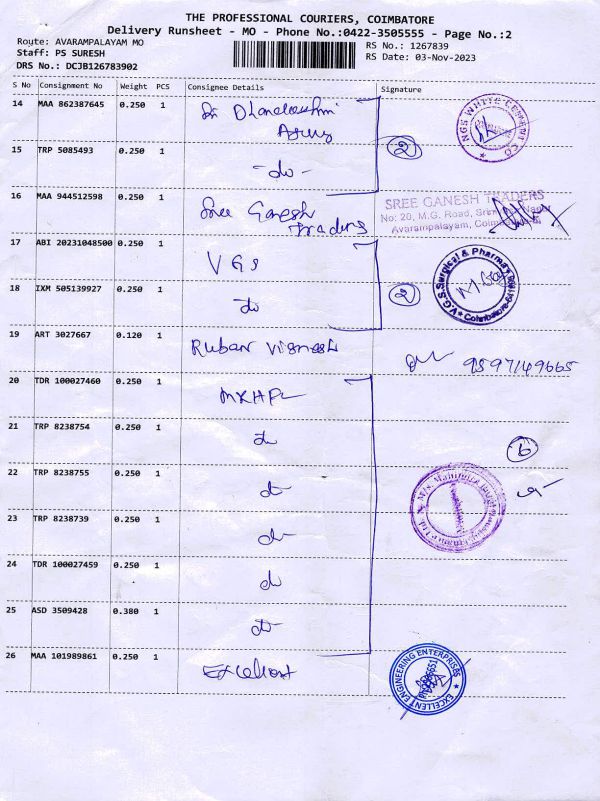 THE PROFESSIONAL COURIERS, COIMBATORE
Delivery Runsheet - MO - Phone No.:0422-3505555 - Page No.:2
Route: AVARAMPALAYAM MO
RS No.: 1267839
Staff: PS SURESH
RS Date: 03-Nov-2023
DRS No.: DCJB126783902
S No Consignment No Weight PCS Consignee Details Signature
14 MAA 862387645 0.250 1 Sri Dhanalakshmi
Agency
NGS WHITE CEMENT CO
2
15 TRP 5085493 0.250 1 -do-
16 MAA 944512598 0.250 1 Sree Ganesh
Traders
SREE GANESH TRADERS
No: 20, M.G. Road,
Avarampalayam,
17 ABI 20231048500 0.250 1 VGS
V.G.S. Surgical & Pharma
Coimbatore
18 IXM 505139927 0.250 1 do
2
19 ART 3027667 0.120 1 Ruban Vignesh
9597149665
20 TDR 100027460 0.250 1 MXHPL
21 TRP 8238754 0.250 1 do
6
22 TRP 8238755 0.250 1 do
23 TRP 8238739 0.250 1 do
24 TDR 100027459 0.250 1 do
25 ASD 3509428 0.380 1 do
26 MAA 101989861 0.250 1 Excellent
EXCELLENT ENGINEERING ENTERPRISES